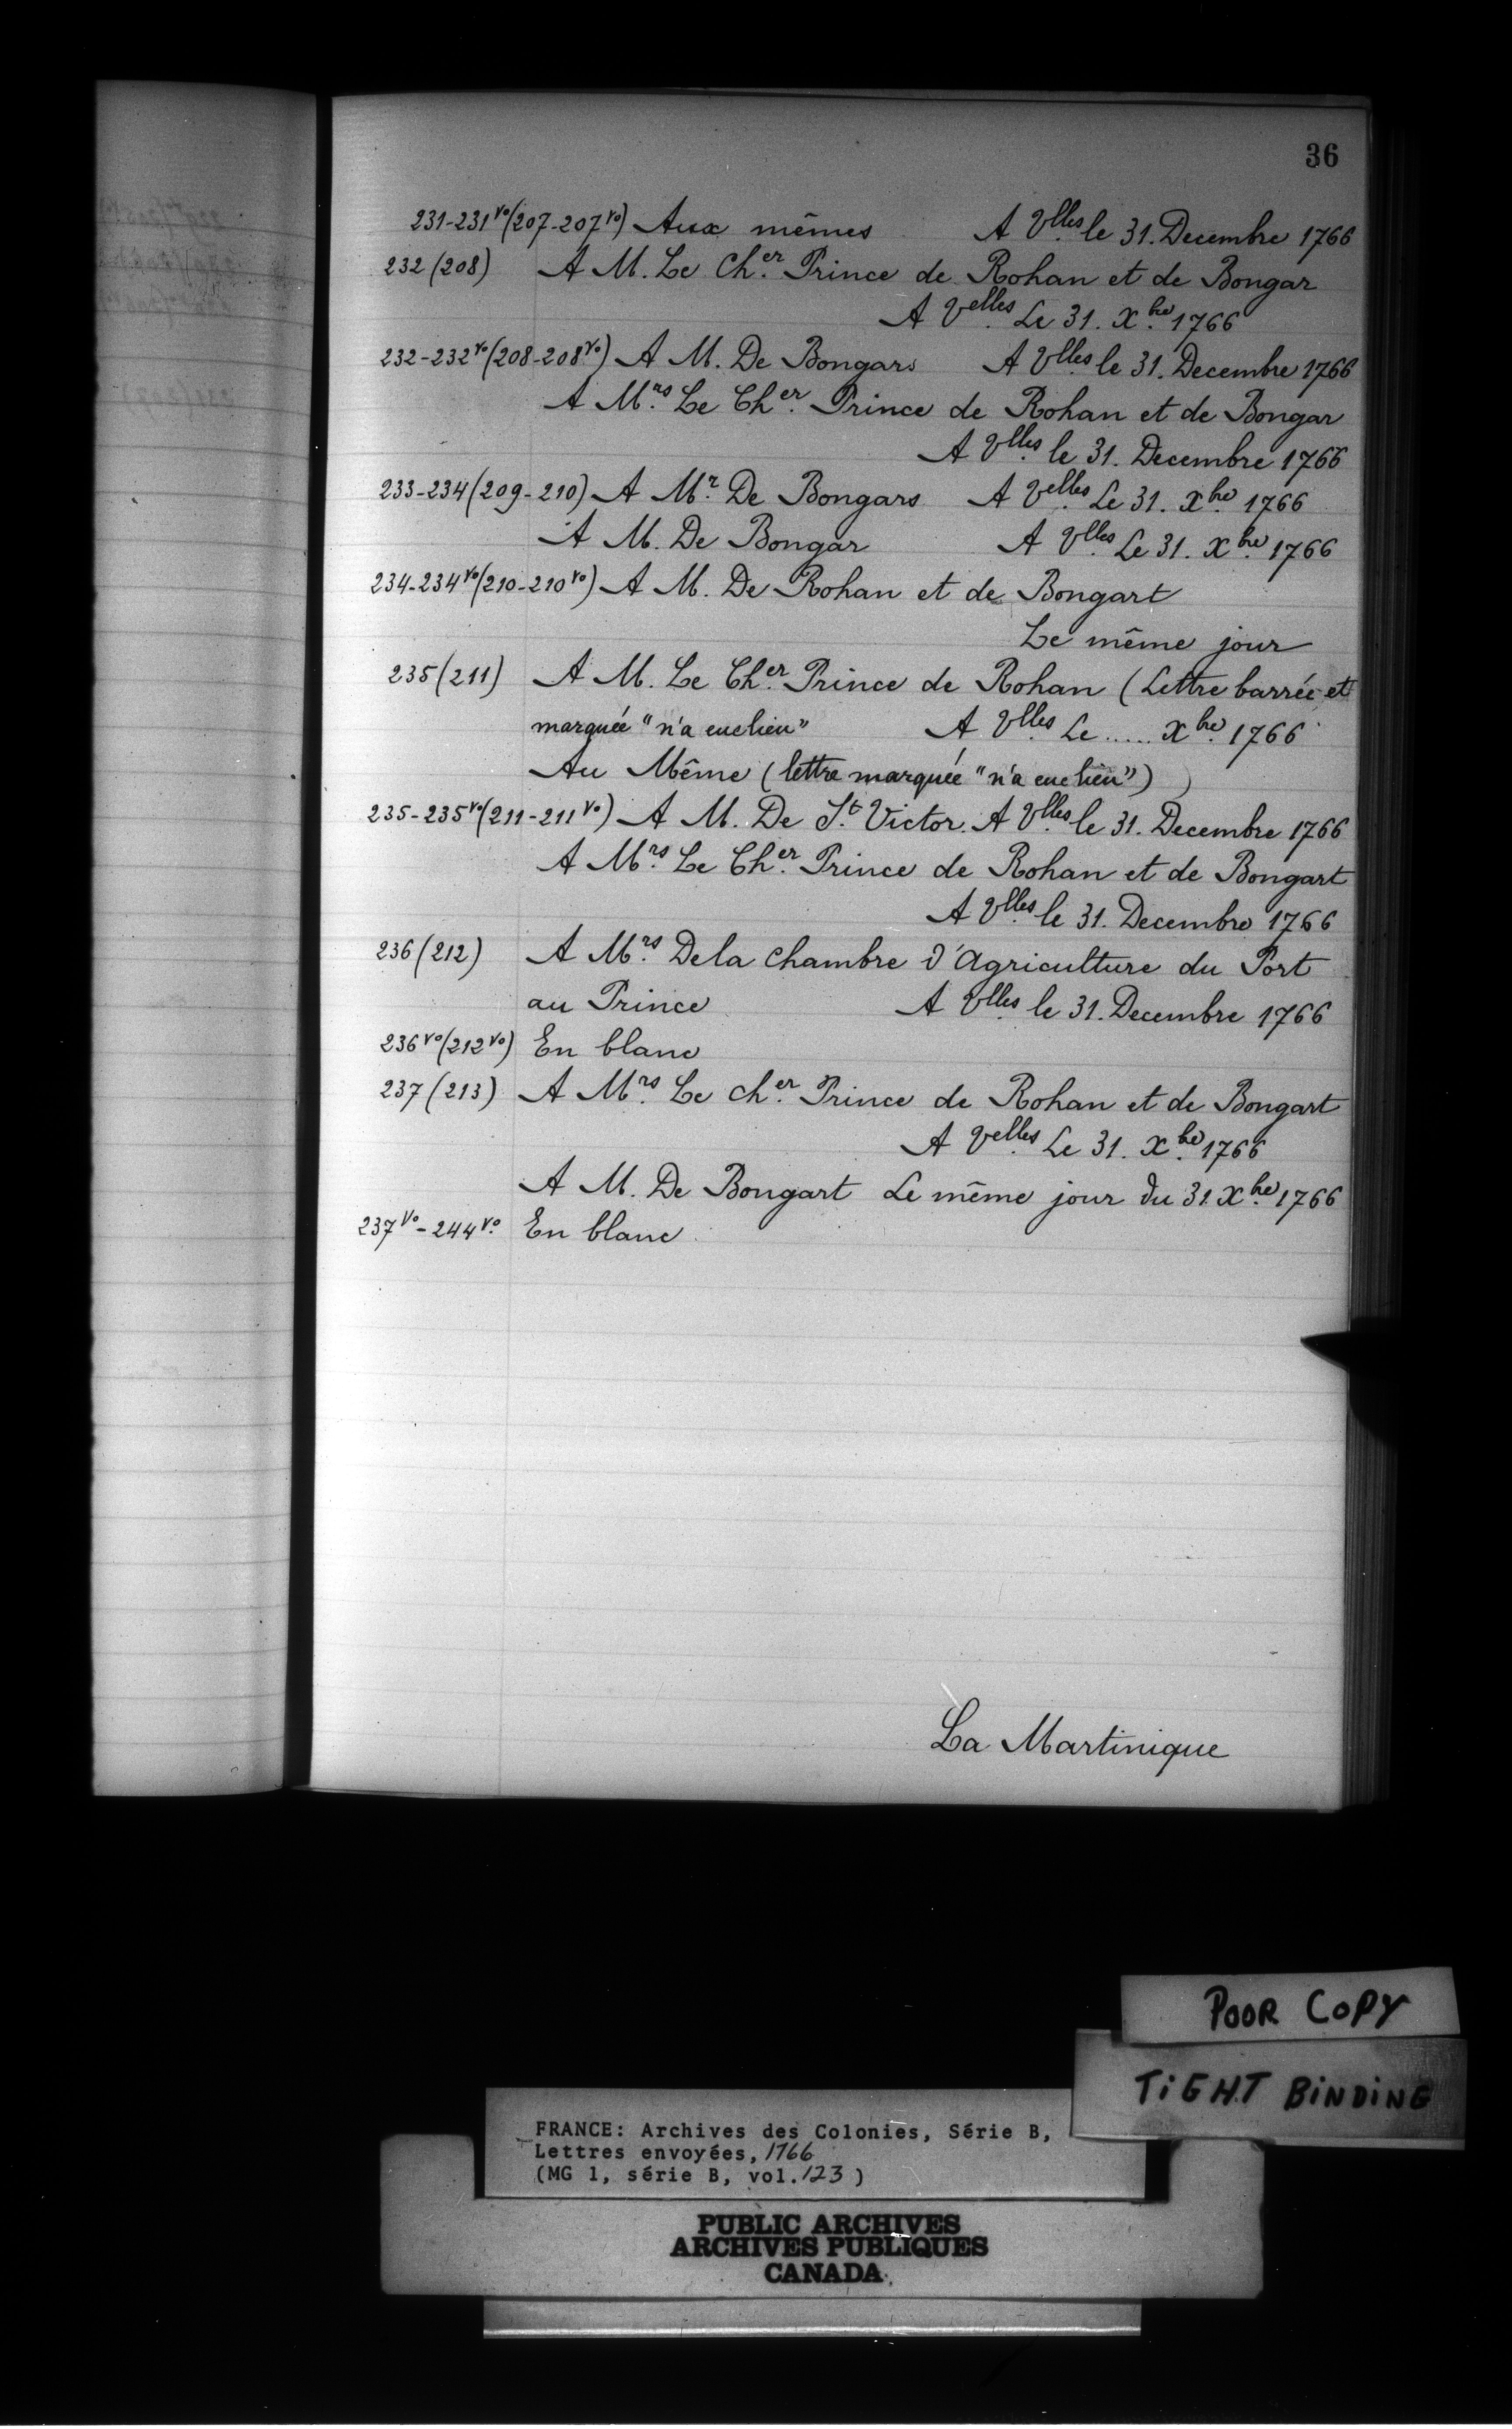 36
231-231vo(207-207vo) Aux mêmes A Vlles le 31. Decembre 1766
232 (208) A M. Le Cher. Prince de Rohan et de Bongar
A Velles Le 31. Xbre 1766
232-232vo(208-208vo) A M. De Bongars A Vlles le 31. Decembre 1766
A Mrs. Le Cher. Prince de Rohan et de Bongar
A Vlles le 31. Decembre 1766
233-234(209-210) A Mr. De Bongars A Velles Le 31. Xbre 1766
A M. De Bongar A Vlles Le 31. Xbre 1766
234-234vo(210-210vo) A M. De Rohan et de Bongart
Le même jour
235(211) A M. Le Cher. Prince de Rohan (Lettre barrée et
marquée "n'a eu lieu" A Vlles Le ..... Xbre 1766
Au Même (lettre marquée "n'a eu lieu")
235-235vo(211-211vo) A M. De St. Victor. A Vlles le 31. Decembre 1766
A Mrs. Le Cher. Prince de Rohan et de Bongart
A Vlles le 31. Decembre 1766
236(212) A Mrs. Dela Chambre d'Agriculture du Port
au Prince A Vlles le 31. Decembre 1766
236vo(212vo) En blanc
237 (213) A Mrs. Le cher. Prince de Rohan et de Bongart
A Velles Le 31. Xbre 1766
A M. De Bongart Le même jour du 31. Xbre 1766
237vo-244vo. En blanc
La Martinique
POOR COPY
TiGHT BiNDiNG
FRANCE: Archives des Colonies, Série B,
Lettres envoyées, 1766
(MG 1, série B, vol. 123)
PUBLIC ARCHIVES
ARCHIVES PUBLIQUES
CANADA